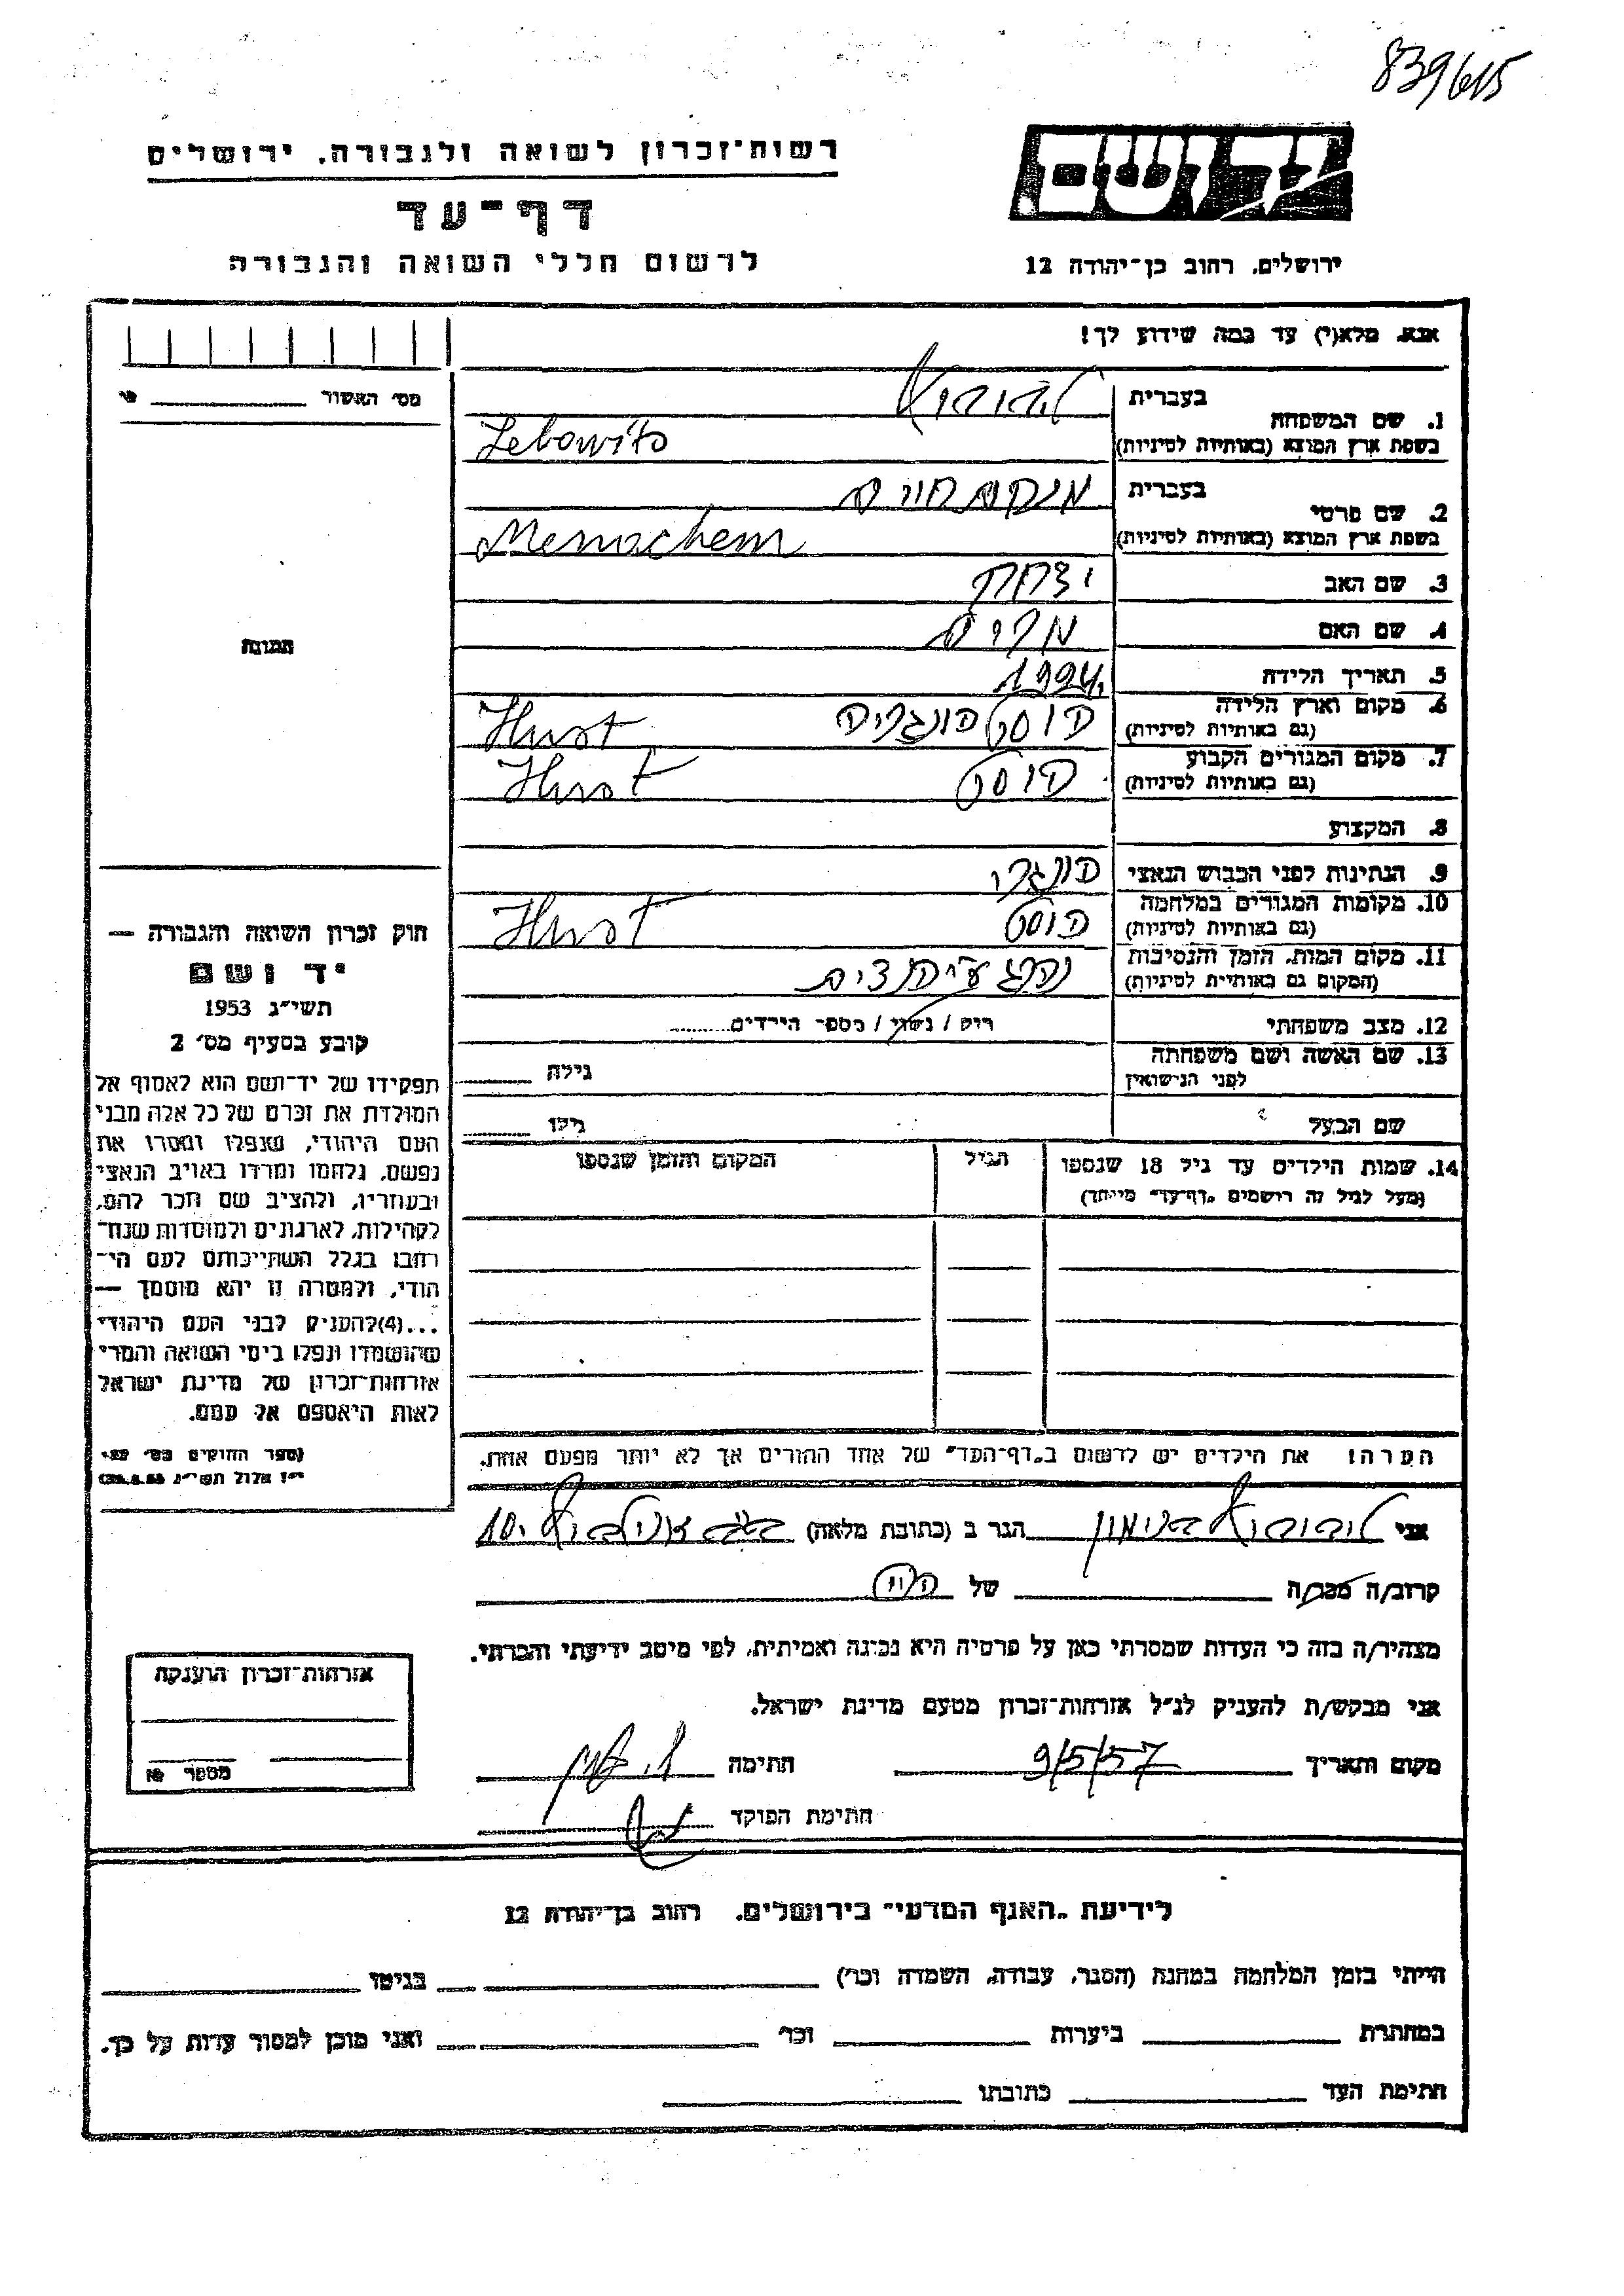 839615
רשות־זכרון לשואה ולגבורה, ירושלים
יד ושם
דף־עד
לרשום חללי השואה והגבורה
ירושלים, רחוב בן־יהודה 12
אנא, מלא(י) עד כמה שידוע לך!
מס׳ האשור
1. שם המשפחה
בעברית ליבוביץ
בשפת ארץ המוצא (באותיות לטיניות) Lebowits
2. שם פרטי
בעברית מנחם חיים
בשפת ארץ המוצא (באותיות לטיניות) Menachem
3. שם האב יצחק
4. שם האם מרים
5. תאריך הלידה 1924
6. מקום וארץ הלידה הוסט הונגריה Hust
(גם באותיות לטיניות)
7. מקום המגורים הקבוע הוסט Hust
(גם באותיות לטיניות)
8. המקצוע
9. הנתינות לפני הכבוש הנאצי הונגרי
10. מקומות המגורים במלחמה הוסט Hust
(גם באותיות לטיניות)
11. מקום המות, הזמן והנסיבות נהרג ע״י הנצים
(המקום גם באותיות לטיניות)
12. מצב משפחתי רוק / נשוי / מספר הילדים
13. שם האשה ושם משפחתה
לפני הנישואין
גילה
שם הבעל גילו
14. שמות הילדים עד גיל 18 שנספו הגיל המקום והזמן שנספו
(מעל לגיל זה רושמים „דף־עד״ מיוחד)
הערה! את הילדים יש לרשום ב„דף־העד״ של אחד ההורים אך לא יותר מפעם אחת.
תמונה
חוק זכרון השואה והגבורה —
יד ושם
תשי״ג 1953
קובע בסעיף מס׳ 2
תפקידו של יד־ושם הוא לאסוף אל
המולדת את זכרם של כל אלה מבני
העם היהודי, שנפלו ומסרו את
נפשם, נלחמו ומרדו באויב הנאצי
ובעוזריו, ולהציב שם וזכר להם,
לקהילות, לארגונים ולמוסדות שנח־
רבו בגלל השתייכותם לעם הי־
הודי, ולמטרה זו יהא מוסמך —
...(4)להעניק לבני העם היהודי
שהושמדו ונפלו בימי השואה והמרי
אזרחות־זכרון של מדינת ישראל
לאות היאספם אל עמם.
(ספר החוקים מס׳ 132
י״ז אלול תשי״ג 28.8.53)
אני ליבוביץ בנימין הגר ב (כתובת מלאה) 10
קרוב/ה מכר/ה של
מצהיר/ה בזה כי העדות שמסרתי כאן על פרטיה היא נכונה ואמיתית, לפי מיטב ידיעתי והכרתי.
אני מבקש/ת להעניק לנ״ל אזרחות־זכרון מטעם מדינת ישראל.
מקום ותאריך 9/5/57 חתימה
חתימת הפוקד
אזרחות־זכרון הוענקה
מספר
לידיעת „האגף המדעי״ בירושלים, רחוב בן־יהודה 12
הייתי בזמן המלחמה במחנה (הסגר, עבודה, השמדה וכו׳) בגיטו
במחתרת ביערות וכו׳ ואני מוכן למסור עדות על כך.
חתימת העד כתובתו